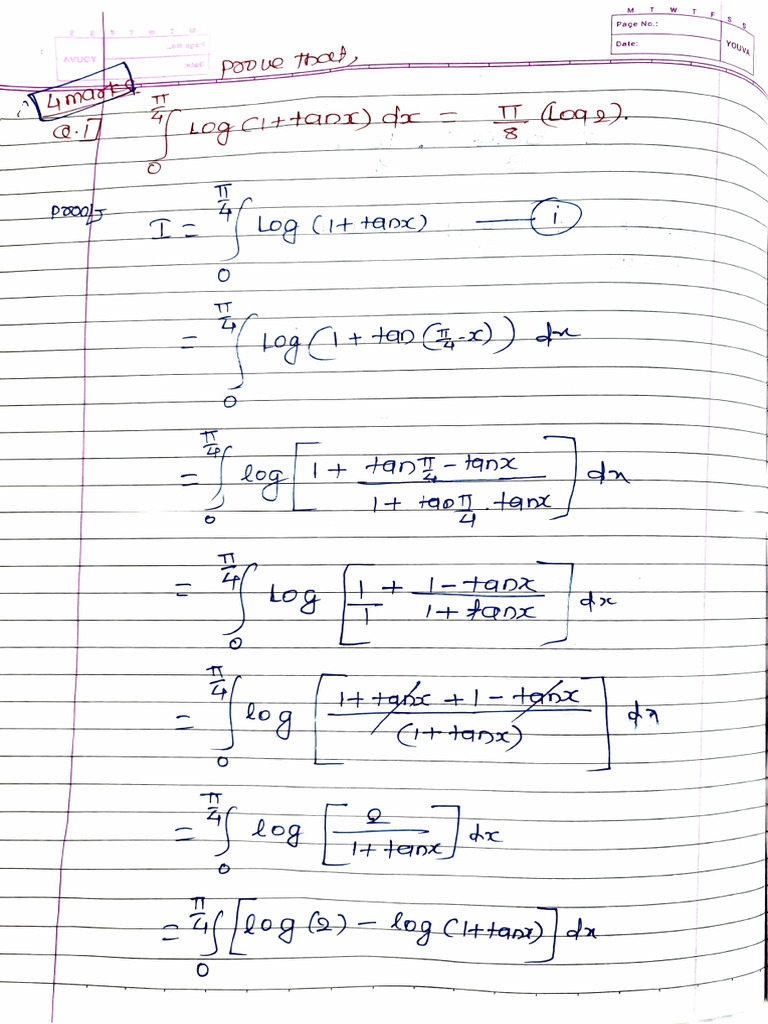 M T W T F S S
Page No.:
Date:
YOUVA
prove that,
4 marks
Q.1] ∫₀^{π/4} Log (1+tanx) dx = π/8 (Log 2).
proof I = ∫₀^{π/4} Log (1+tanx) — (i)
= ∫₀^{π/4} Log (1 + tan (π/4 - x)) dx
= ∫₀^{π/4} log [1 + (tan π/4 - tanx)/(1 + tan π/4 . tanx)] dx
= ∫₀^{π/4} Log [1/1 + (1 - tanx)/(1 + tanx)] dx
= ∫₀^{π/4} log [(1 + tanx + 1 - tanx)/(1 + tanx)] dx
= ∫₀^{π/4} log [2/(1 + tanx)] dx
= ∫₀^{π/4} [log (2) - log (1+tanx)] dx